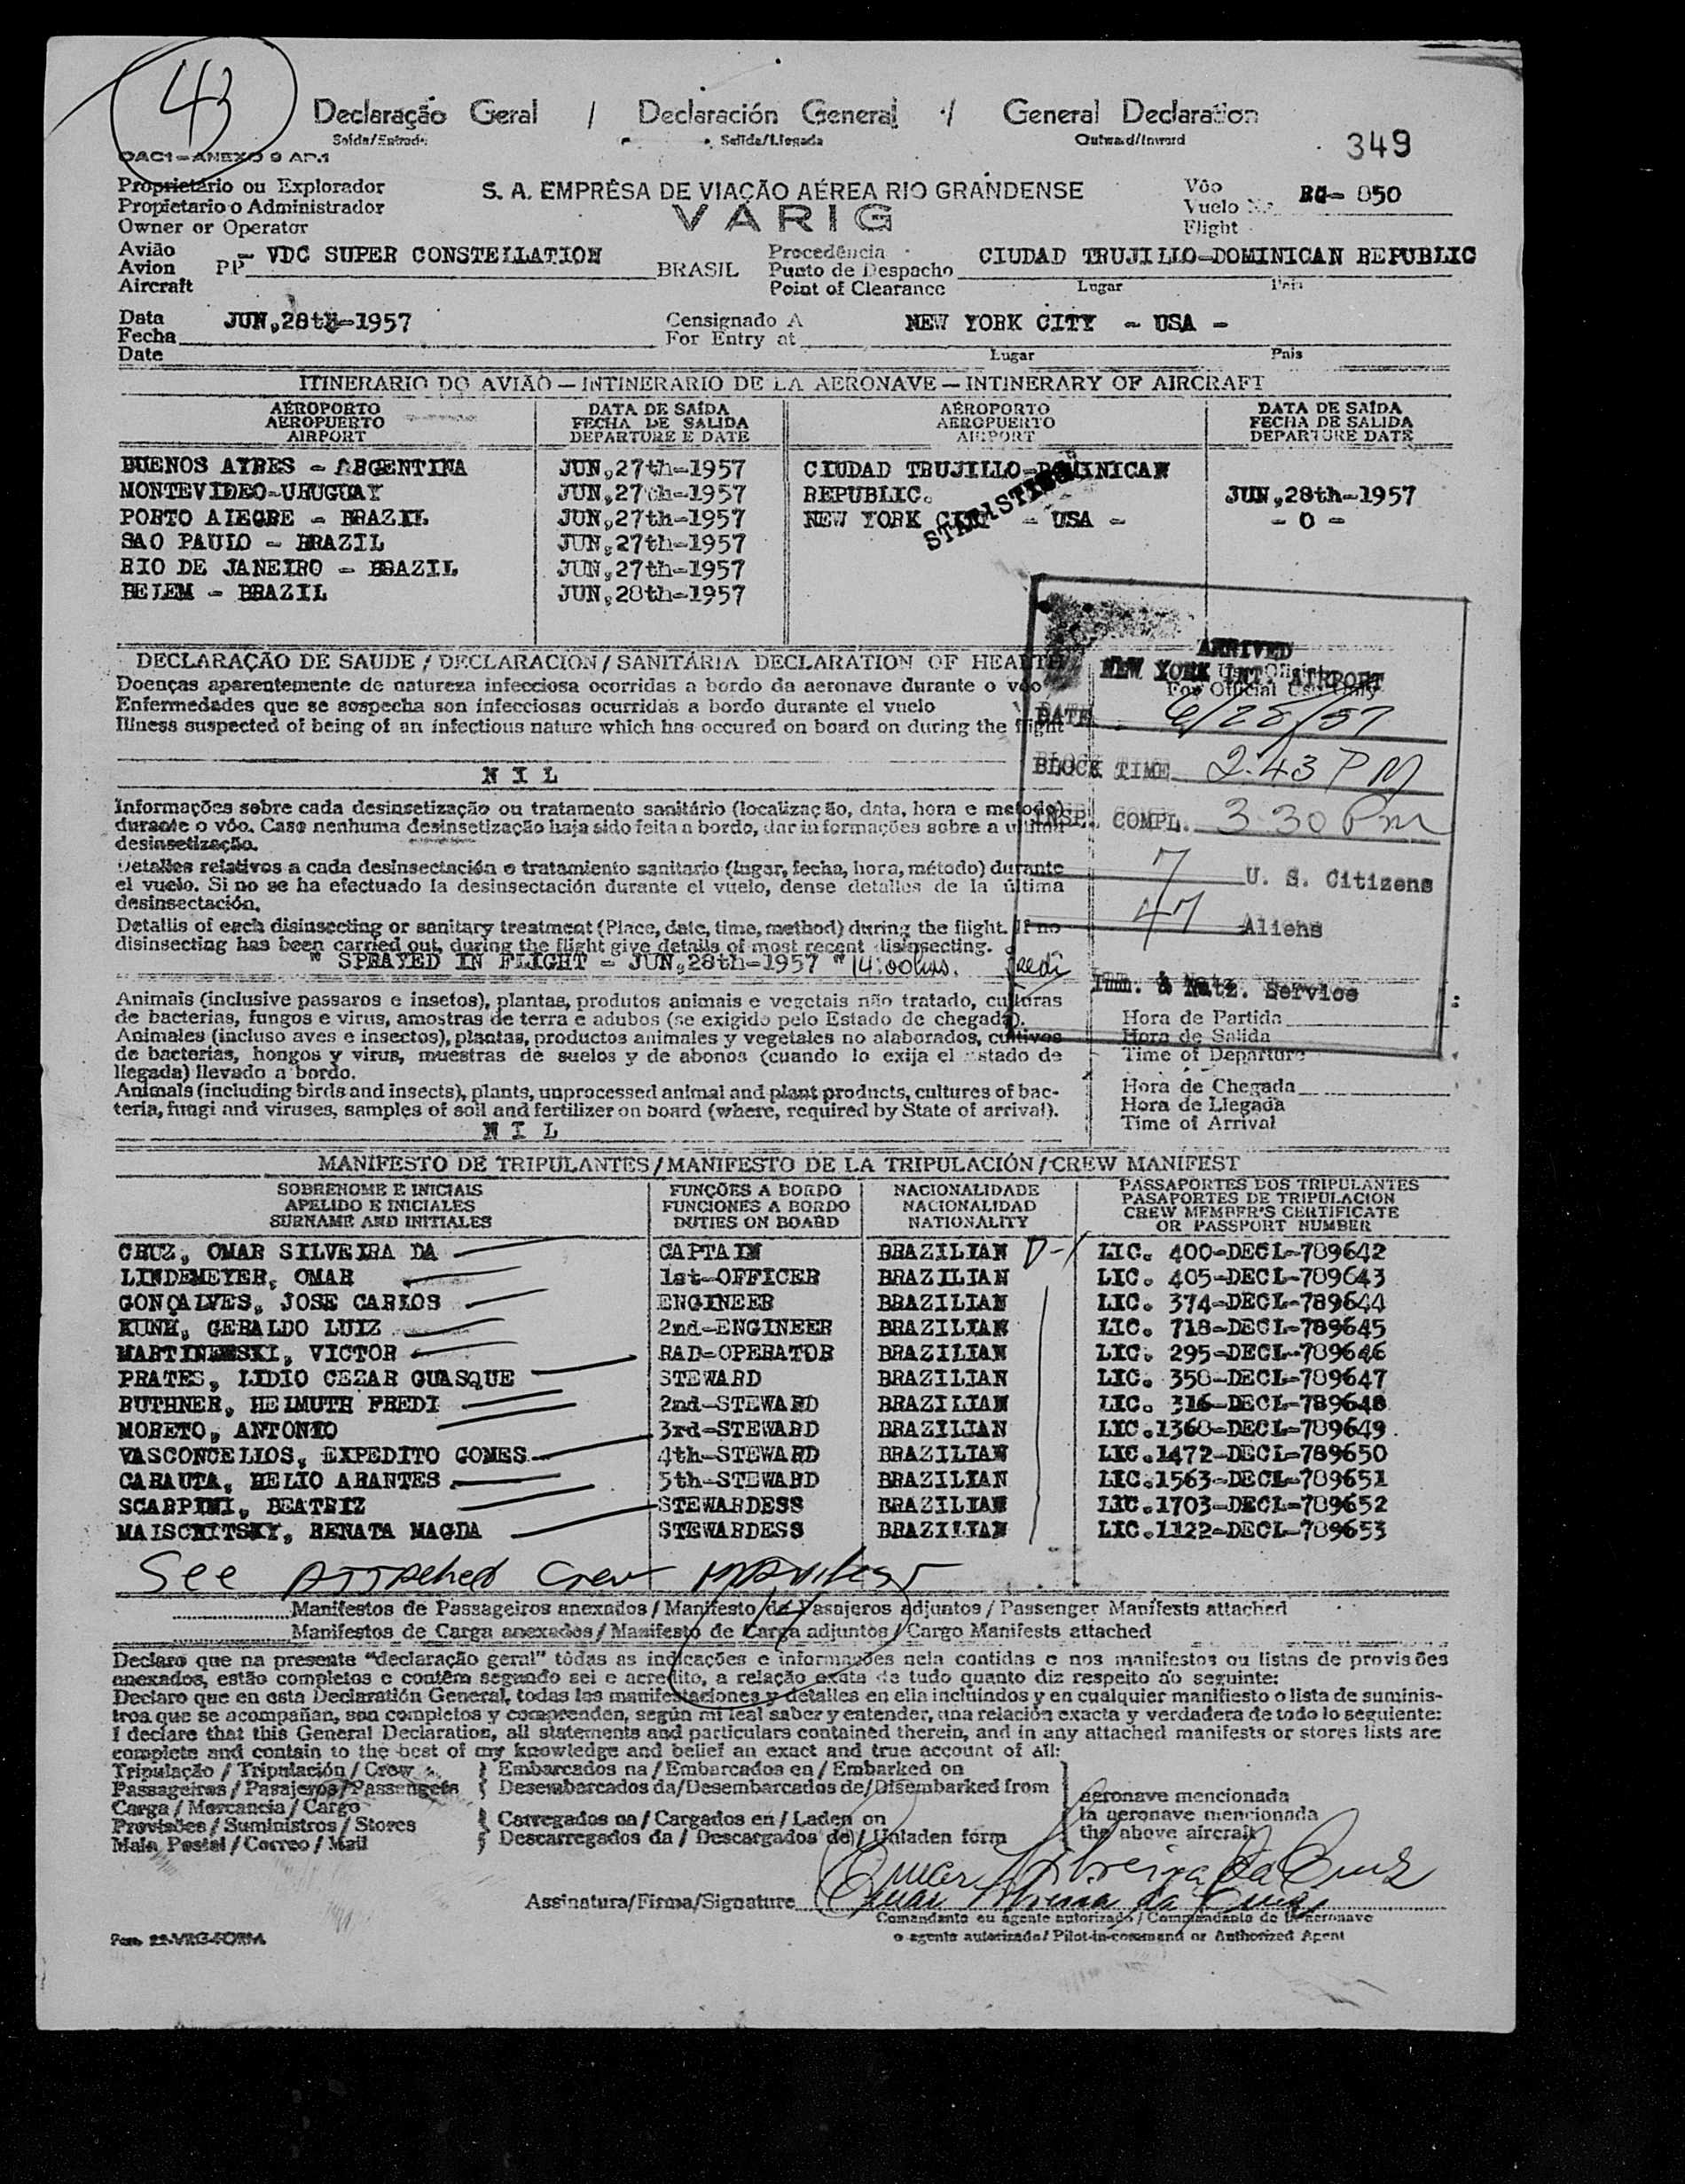 43
Declaração Geral / Declaración General / General Declaration
Saída/Entrada Salida/Llegada Outward/Inward
349
OACI - ANEXO 9 AP.1
Proprietário ou Explorador
Propietario o Administrador
Owner or Operator
S. A. EMPRÊSA DE VIAÇÃO AÉREA RIO GRANDENSE
VARIG
Vôo
Vuelo N.º RG- 850
Flight
Avião
Avion PP - VDC SUPER CONSTELLATION BRASIL
Aircraft
Procedência
Punto de Despacho CIUDAD TRUJILLO-DOMINICAN REPUBLIC
Point of Clearance Lugar País
Data
Fecha JUN,28th-1957
Date
Censignado A
For Entry at NEW YORK CITY - USA -
Lugar Pais
ITINERARIO DO AVIÃO — INTINERARIO DE LA AERONAVE — INTINERARY OF AIRCRAFT
AÉROPORTO DATA DE SAÍDA AÉROPORTO DATA DE SAÍDA
AEROPUERTO FECHA DE SALIDA AEROPUERTO FECHA DE SALIDA
AIRPORT DEPARTURE E DATE AIRPORT DEPARTURE DATE
BUENOS AYRES - ARGENTINA JUN,27th-1957 CIUDAD TRUJILLO-DOMINICAN
MONTEVIDEO-URUGUAY JUN,27th-1957 REPUBLIC. JUN,28th-1957
PORTO ALEGRE - BRAZIL JUN,27th-1957 NEW YORK CITY - USA - - O -
SAO PAULO - BRAZIL JUN,27th-1957
RIO DE JANEIRO - BRAZIL JUN,27th-1957
BELEM - BRAZIL JUN,28th-1957
DECLARAÇÃO DE SAUDE / DECLARACION / SANITÁRIA DECLARATION OF HEALTH
Doenças aparentemente de natureza infecciosa ocorridas a bordo da aeronave durante o vôo
Enfermedades que se sospecha son infecciosas ocurridas a bordo durante el vuelo
Illness suspected of being of an infectious nature which has occured on board on during the flight
N I L
ARRIVED
NEW YORK INT. AIRPORT
For Official Use Only
DATE 6/28/57
BLOCK TIME 2:43 PM
INSP. COMPL. 3 30 Pm
7 U. S. Citizens
47 Aliens
Imm. & Natz. Service
Informações sobre cada desinsetização ou tratamento sanitário (localização, data, hora e metodo)
durante o vôo. Caso nenhuma desinsetização haja sido feita a bordo, dar informações sobre a ultima
desinsetização.
Detalles relativos a cada desinsectación o tratamiento sanitario (lugar, fecha, hora, método) durante
el vuelo. Si no se ha efectuado la desinsectación durante el vuelo, dense detalles de la última
desinsectación.
Detallis of each disinsecting or sanitary treatment (Place, date, time, method) during the flight. If no
disinsecting has been carried out, during the flight give details of most recent disinsecting.
" SPRAYED IN FLIGHT - JUN,28th-1957 " 14:00hrs.
Animais (inclusive passaros e insetos), plantas, produtos animais e vegetais não tratado, culturas
de bacterias, fungos e virus, amostras de terra e adubos (se exigido pelo Estado de chegada).
Animales (incluso aves e insectos), plantas, productos animales y vegetales no alaborados, cultivos
de bacterias, hongos y virus, muestras de suelos y de abonos (cuando lo exija el Estado de
llegada) llevado a bordo.
Animals (including birds and insects), plants, unprocessed animal and plant products, cultures of bac-
teria, fungi and viruses, samples of soil and fertilizer on board (where, required by State of arrival).
N I L
Hora de Partida
Hora de Salida
Time of Departure
Hora de Chegada
Hora de Llegada
Time of Arrival
MANIFESTO DE TRIPULANTES / MANIFESTO DE LA TRIPULACIÓN / CREW MANIFEST
SOBRENOME E INICIAIS FUNÇÕES A BORDO NACIONALIDADE PASSAPORTES DOS TRIPULANTES
APELIDO E INICIALES FUNCIONES A BORDO NACIONALIDAD PASAPORTES DE TRIPULACION
SURNAME AND INITIALES DUTIES ON BOARD NATIONALITY CREW MEMBER'S CERTIFICATE
OR PASSPORT NUMBER
CRUZ, OMAR SILVEIRA DA CAPTAIN BRAZILIAN D-1 LIC. 400-DECL-789642
LINDEMEYER, OMAR 1st-OFFICER BRAZILIAN LIC. 405-DECL-789643
GONÇALVES, JOSE CARLOS ENGINEER BRAZILIAN LIC. 374-DECL-789644
KUNH, GERALDO LUIZ 2nd-ENGINEER BRAZILIAN LIC. 718-DECL-789645
MARTINEWSKI, VICTOR RAD-OPERATOR BRAZILIAN LIC. 295-DECL-789646
PRATES, LIDIO CEZAR GUASQUE STEWARD BRAZILIAN LIC. 358-DECL-789647
BUTHNER, HELMUTH FREDI 2nd-STEWARD BRAZILIAN LIC. 316-DECL-789648
MORETO, ANTONIO 3rd-STEWARD BRAZILIAN LIC.1368-DECL-789649.
VASCONCELLOS, EXPEDITO GOMES 4th-STEWARD BRAZILIAN LIC.1472-DECL-789650
CARAUTA, HELIO ARANTES 5th-STEWARD BRAZILIAN LIC.1563-DECL-789651
SCARPINI, BEATRIZ STEWARDESS BRAZILIAN LIC.1703-DECL-789652
MAISCHITSKY, RENATA MAGDA STEWARDESS BRAZILIAN LIC.1122-DECL-789653
See Attached Crew Manifest
Manifestos de Passageiros anexados / Manifesto de Pasajeros adjuntos / Passenger Manifests attached
Manifestos de Carga anexados / Manifesto de Carga adjuntos / Cargo Manifests attached
Declaro que na presente "declaração geral" tôdas as indicações e informações nela contidas e nos manifestos ou listas de provisões
anexados, estão completos e contêm segundo sei e acredito, a relação exata de tudo quanto diz respeito ao seguinte:
Declaro que en esta Declaratión General, todas las manifestaciones y detalles en ella incluindos y en cualquier manifiesto o lista de suminis-
tros que se acompañan, son completos y comprenden, según mi leal saber y entender, una relación exacta y verdadera de todo lo seguiente:
I declare that this General Declaration, all statements and particulars contained therein, and in any attached manifests or stores lists are
complete and contain to the best of my knowledge and belief an exact and true account of all:
Tripulação / Tripulación / Crew
Passageiros / Pasajeros / Passengers
Carga / Mercancia / Cargo
Provisões / Suministros / Stores
Mala Postal / Correo / Mail
Embarcados na / Embarcados en / Embarked on
Desembarcados da/Desembarcados de/Disembarked from
Carregados na / Cargados en / Laden on
Descarregados da / Descargados de / Unladen form
aeronave mencionada
la aeronave mencionada
the above aircraft
Omar Silveira da Cruz
Assinatura/Firma/Signature Omar Silveira da Cruz
Comandante ou agente autorizado / Commandante de la aeronave
o agente autorizado / Pilot-in-command or Authorized Agent